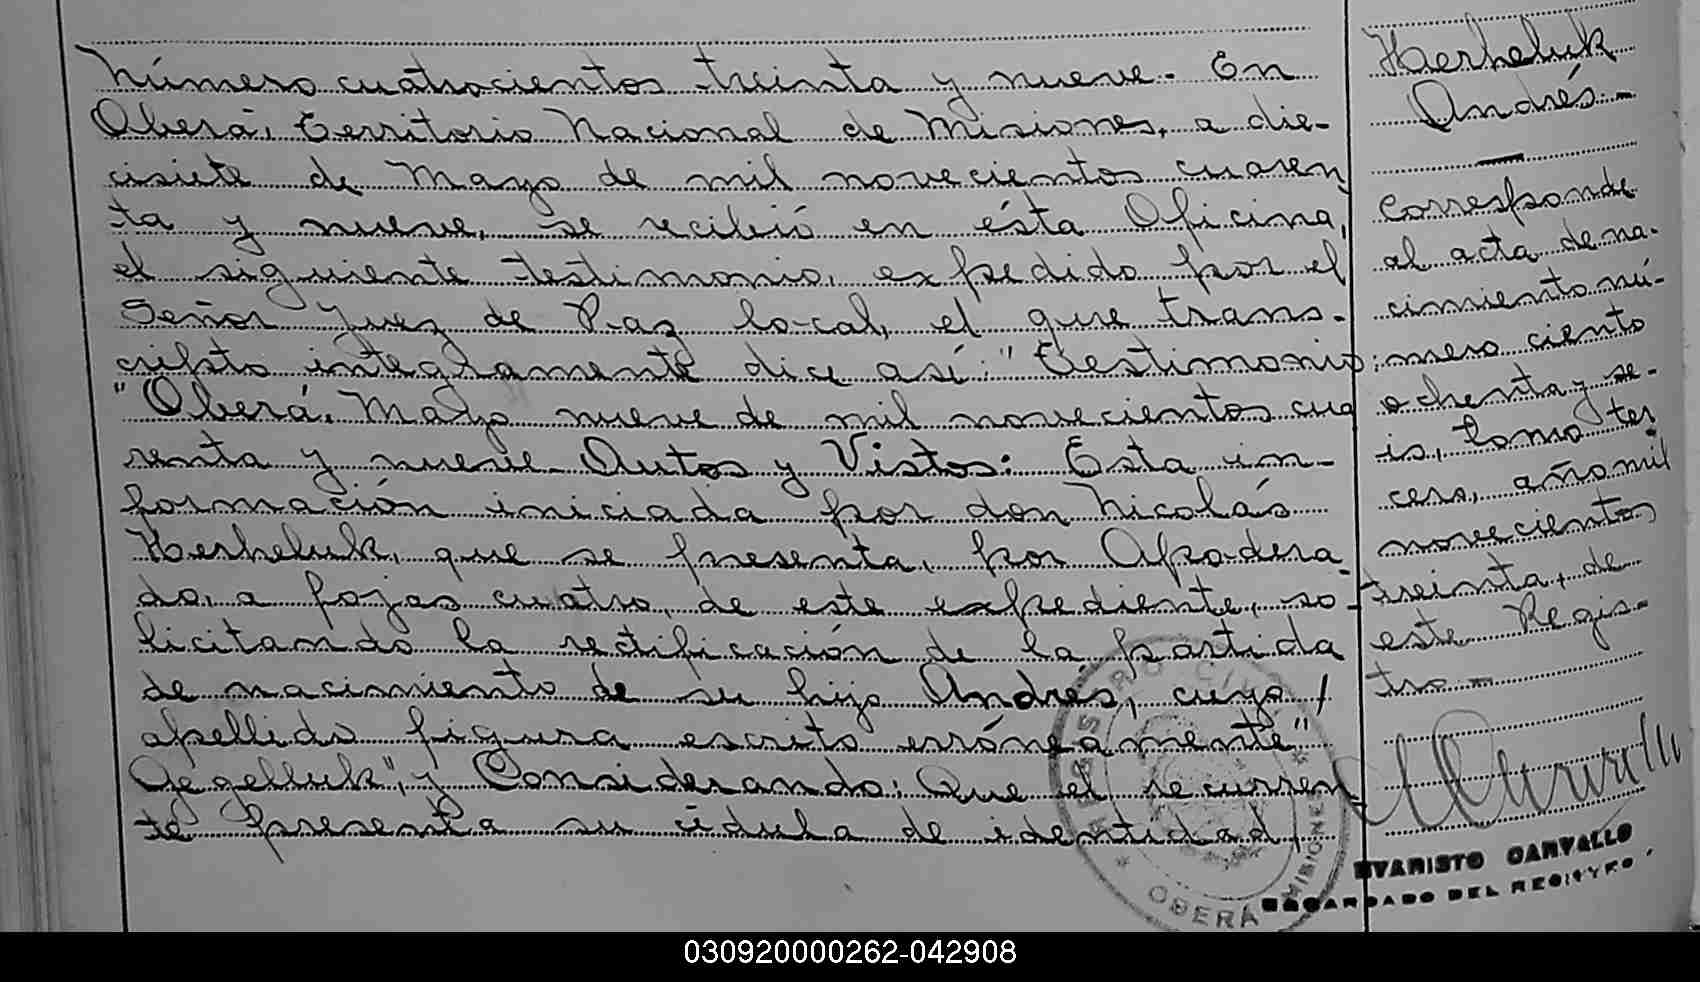 Número cuatrocientos treinta y nueve.- En
Oberá, Territorio Nacional de Misiones, a die-
cisiete de Mayo de mil novecientos cuaren-
ta y nueve, se recibió en ésta Oficina,
el siguiente testimonio, expedido por el
Señor Juez de Paz local, el que trans-
cripto integramente dice así: "Testimonio:
"Oberá, Mayo nueve de mil novecientos cua
renta y nueve.- Autos y Vistos: Esta in-
formación iniciada por don Nicolás
Herheluk, que se presenta, por Apodera
do, a fojas cuatro, de este expediente, so-
licitando la rectificación de la partida
de nacimiento de su hijo Andrés, cuyo /
apellido figura escrito erróneamente"
Gegelluk", y Considerando: Que el recurren-
te presenta su cédula de identidad,
Herheluk
Andrés.-
Corresponde
al acta de na-
cimiento nú-
mero ciento
ochenta y se-
is, tomo ter
cero, año mil
novecientos
treinta, de
este Regis-
tro.-
EVARISTO CARVALLO
ENCARGADO DEL REGISTRO
REGISTRO CIVIL
* OBERÁ MISIONES *
030920000262-042908